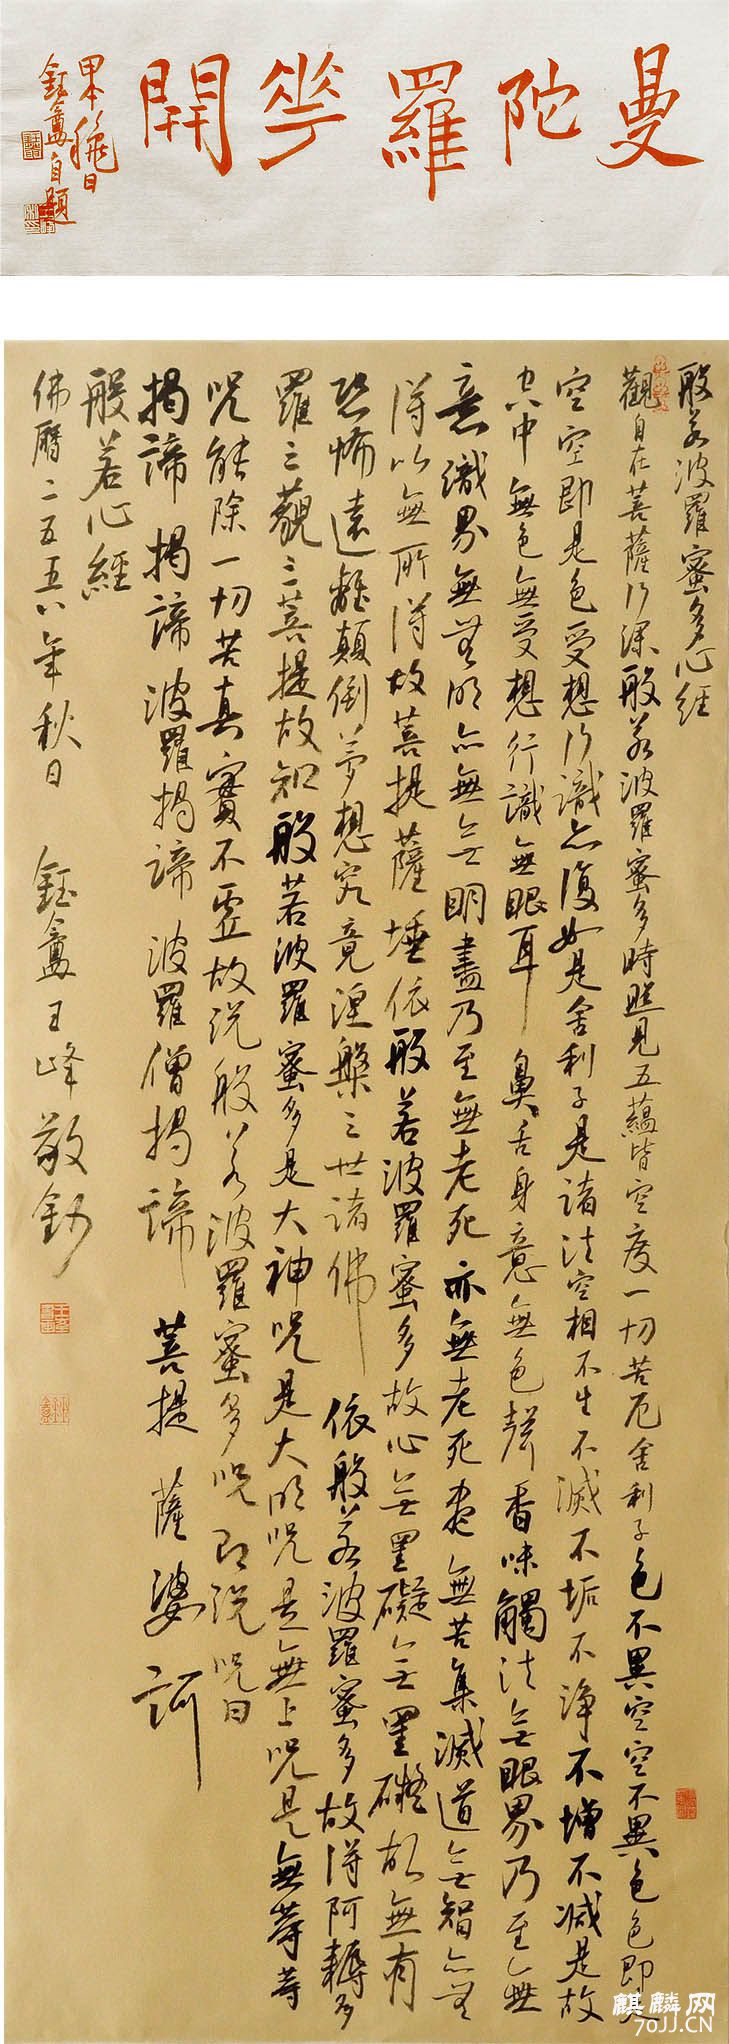 曼陀羅華開
甲午秋日
鈺龕自題
般若波羅蜜多心經
觀自在菩薩行深般若波羅蜜多時照見五蘊皆空度一切苦厄舍利子色不異空空不異色色即是
空空即是色受想行識亦復如是舍利子是諸法空相不生不滅不垢不淨不增不減是故
空中無色無受想行識無眼耳鼻舌身意無色聲香味觸法無眼界乃至無
意識界無無明亦無無明盡乃至無老死亦無老死盡無苦集滅道無智亦無
得以無所得故菩提薩埵依般若波羅蜜多故心無罣礙無罣礙故無有
恐怖遠離顛倒夢想究竟涅槃三世諸佛依般若波羅蜜多故得阿耨多
羅三藐三菩提故知般若波羅蜜多是大神咒是大明咒是無上咒是無等等
咒能除一切苦真實不虛故說般若波羅蜜多咒即說咒曰
揭諦揭諦波羅揭諦波羅僧揭諦菩提薩婆訶
般若心經
佛曆二五五八年秋日 鈺龕王峰敬鈔
麒麟网
70JJ.CN